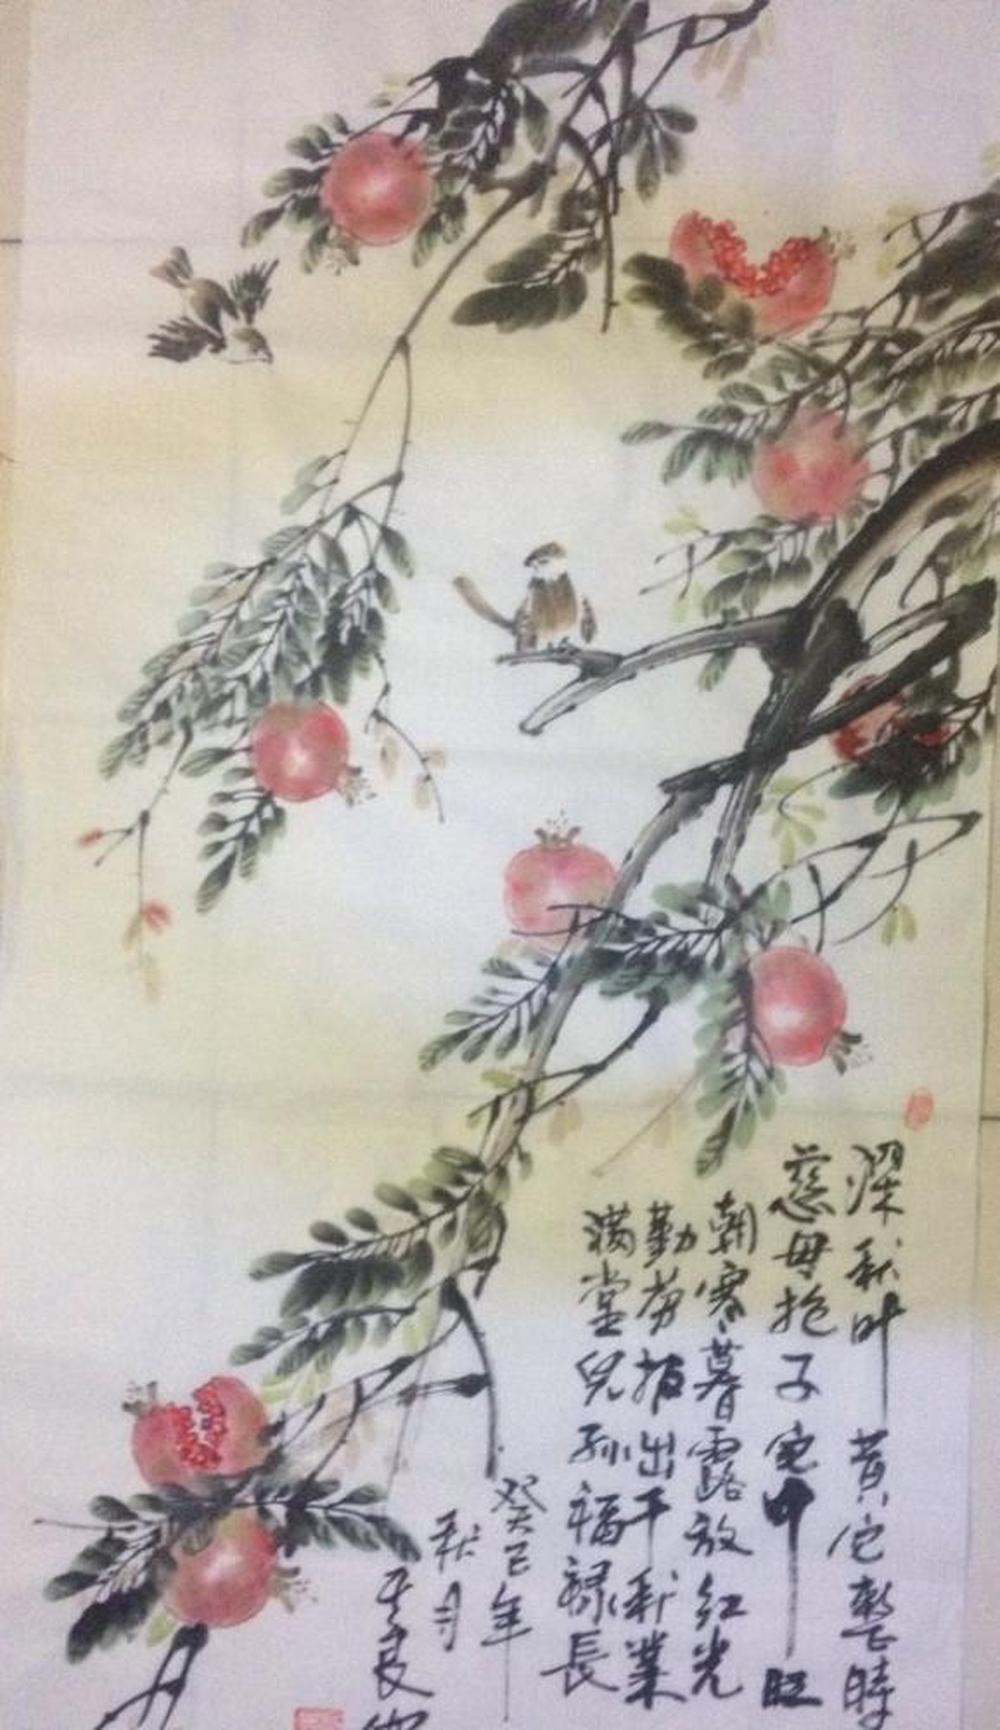 深秋叶黄它整時
慈母抱子室中旺
朝寒暮露放红光
勤劳报出千秋業
满堂兒孙福禄長
癸巳年
秋月
良